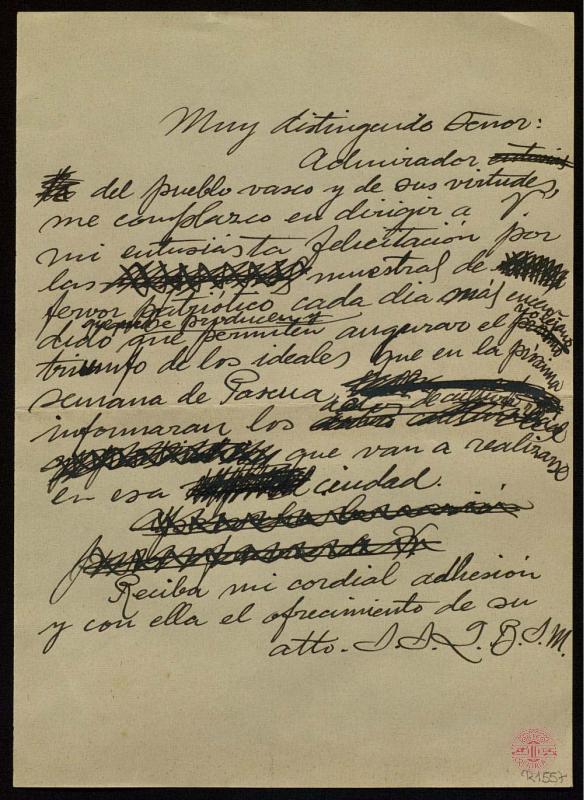 Muy distinguido Señor:
Admirador
del pueblo vasco y de sus virtudes,
me complazco en dirigir a V.
mi entusiasta felicitación por
las muestras de
fervor patriótico cada dia más encen-
que se producen y
dido que permiten augurar el próximo
triunfo de los ideales que en la próxima
semana de Pascua,
informaran los actos de cultura
que van a realizarse
en esa ciudad.
Reciba mi cordial adhesión
y con ella el ofrecimiento de su
atto. S. S. Q. B. S. M.
R1557